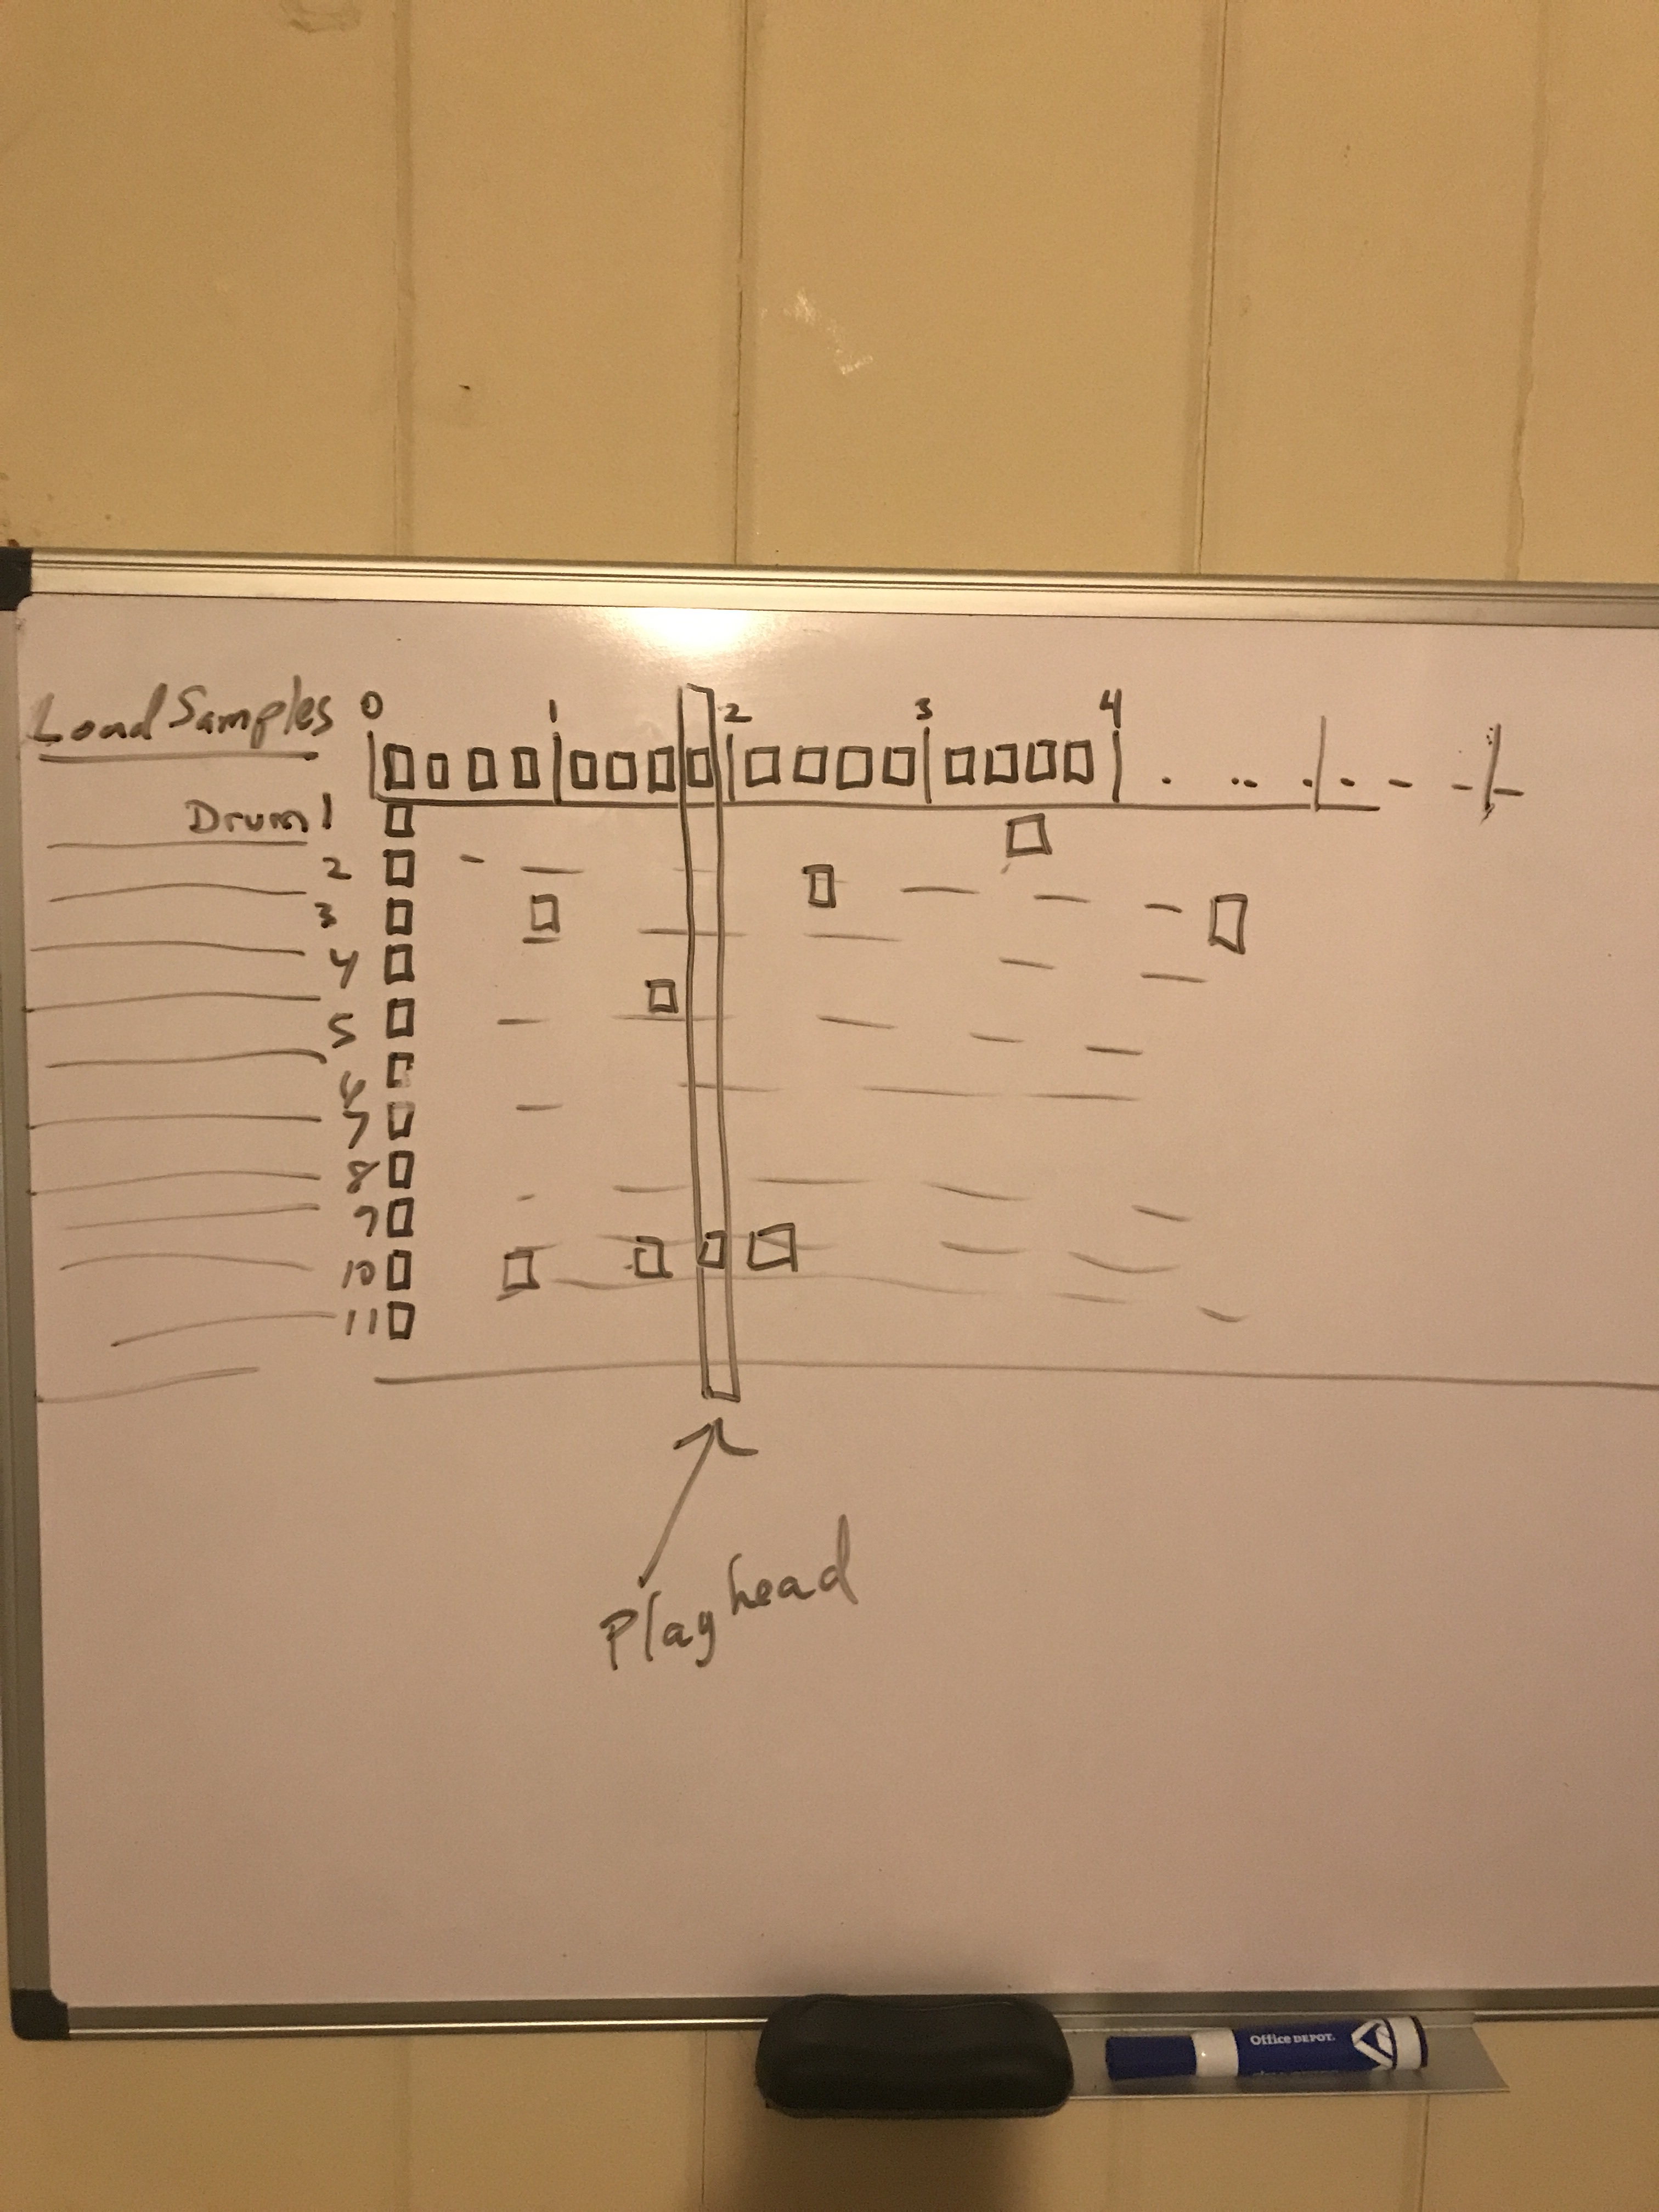 Load Samples
0 1 2 3 4
Drum 1
2
3
4
5
6
7
8
9
10
11
Playhead
Office DEPOT.